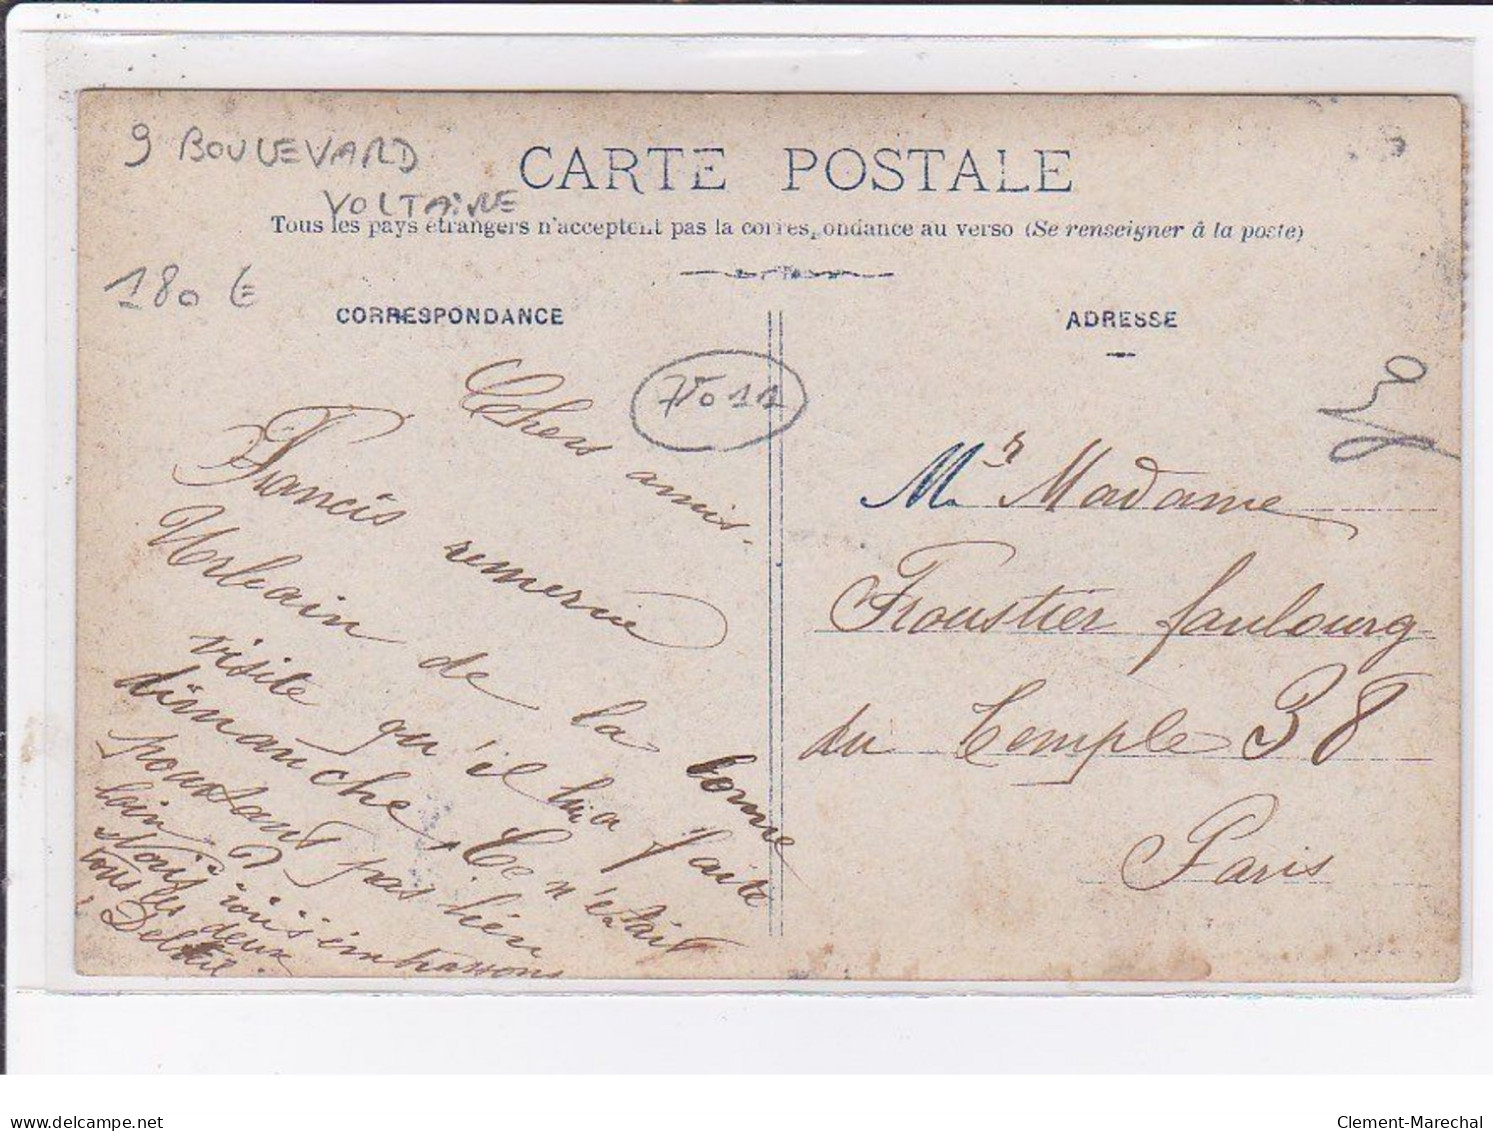 9 BOULEVARD
VOLTAIRE
CARTE POSTALE
Tous les pays étrangers n'acceptent pas la correspondance au verso (Se renseigner à la poste)
180 €
CORRESPONDANCE
75011
Chers amis.
Francis remercie
Urbain de la bonne
visite qu'il lui a faite
dimanche. Ce n'était
pourtant pas bien
loin
Nous vous embrassons
tous les deux
Delteil.
ADRESSE
Mr Madame
Froustier faubourg
du Temple 38
Paris
delcampe.net
Clement-Marechal